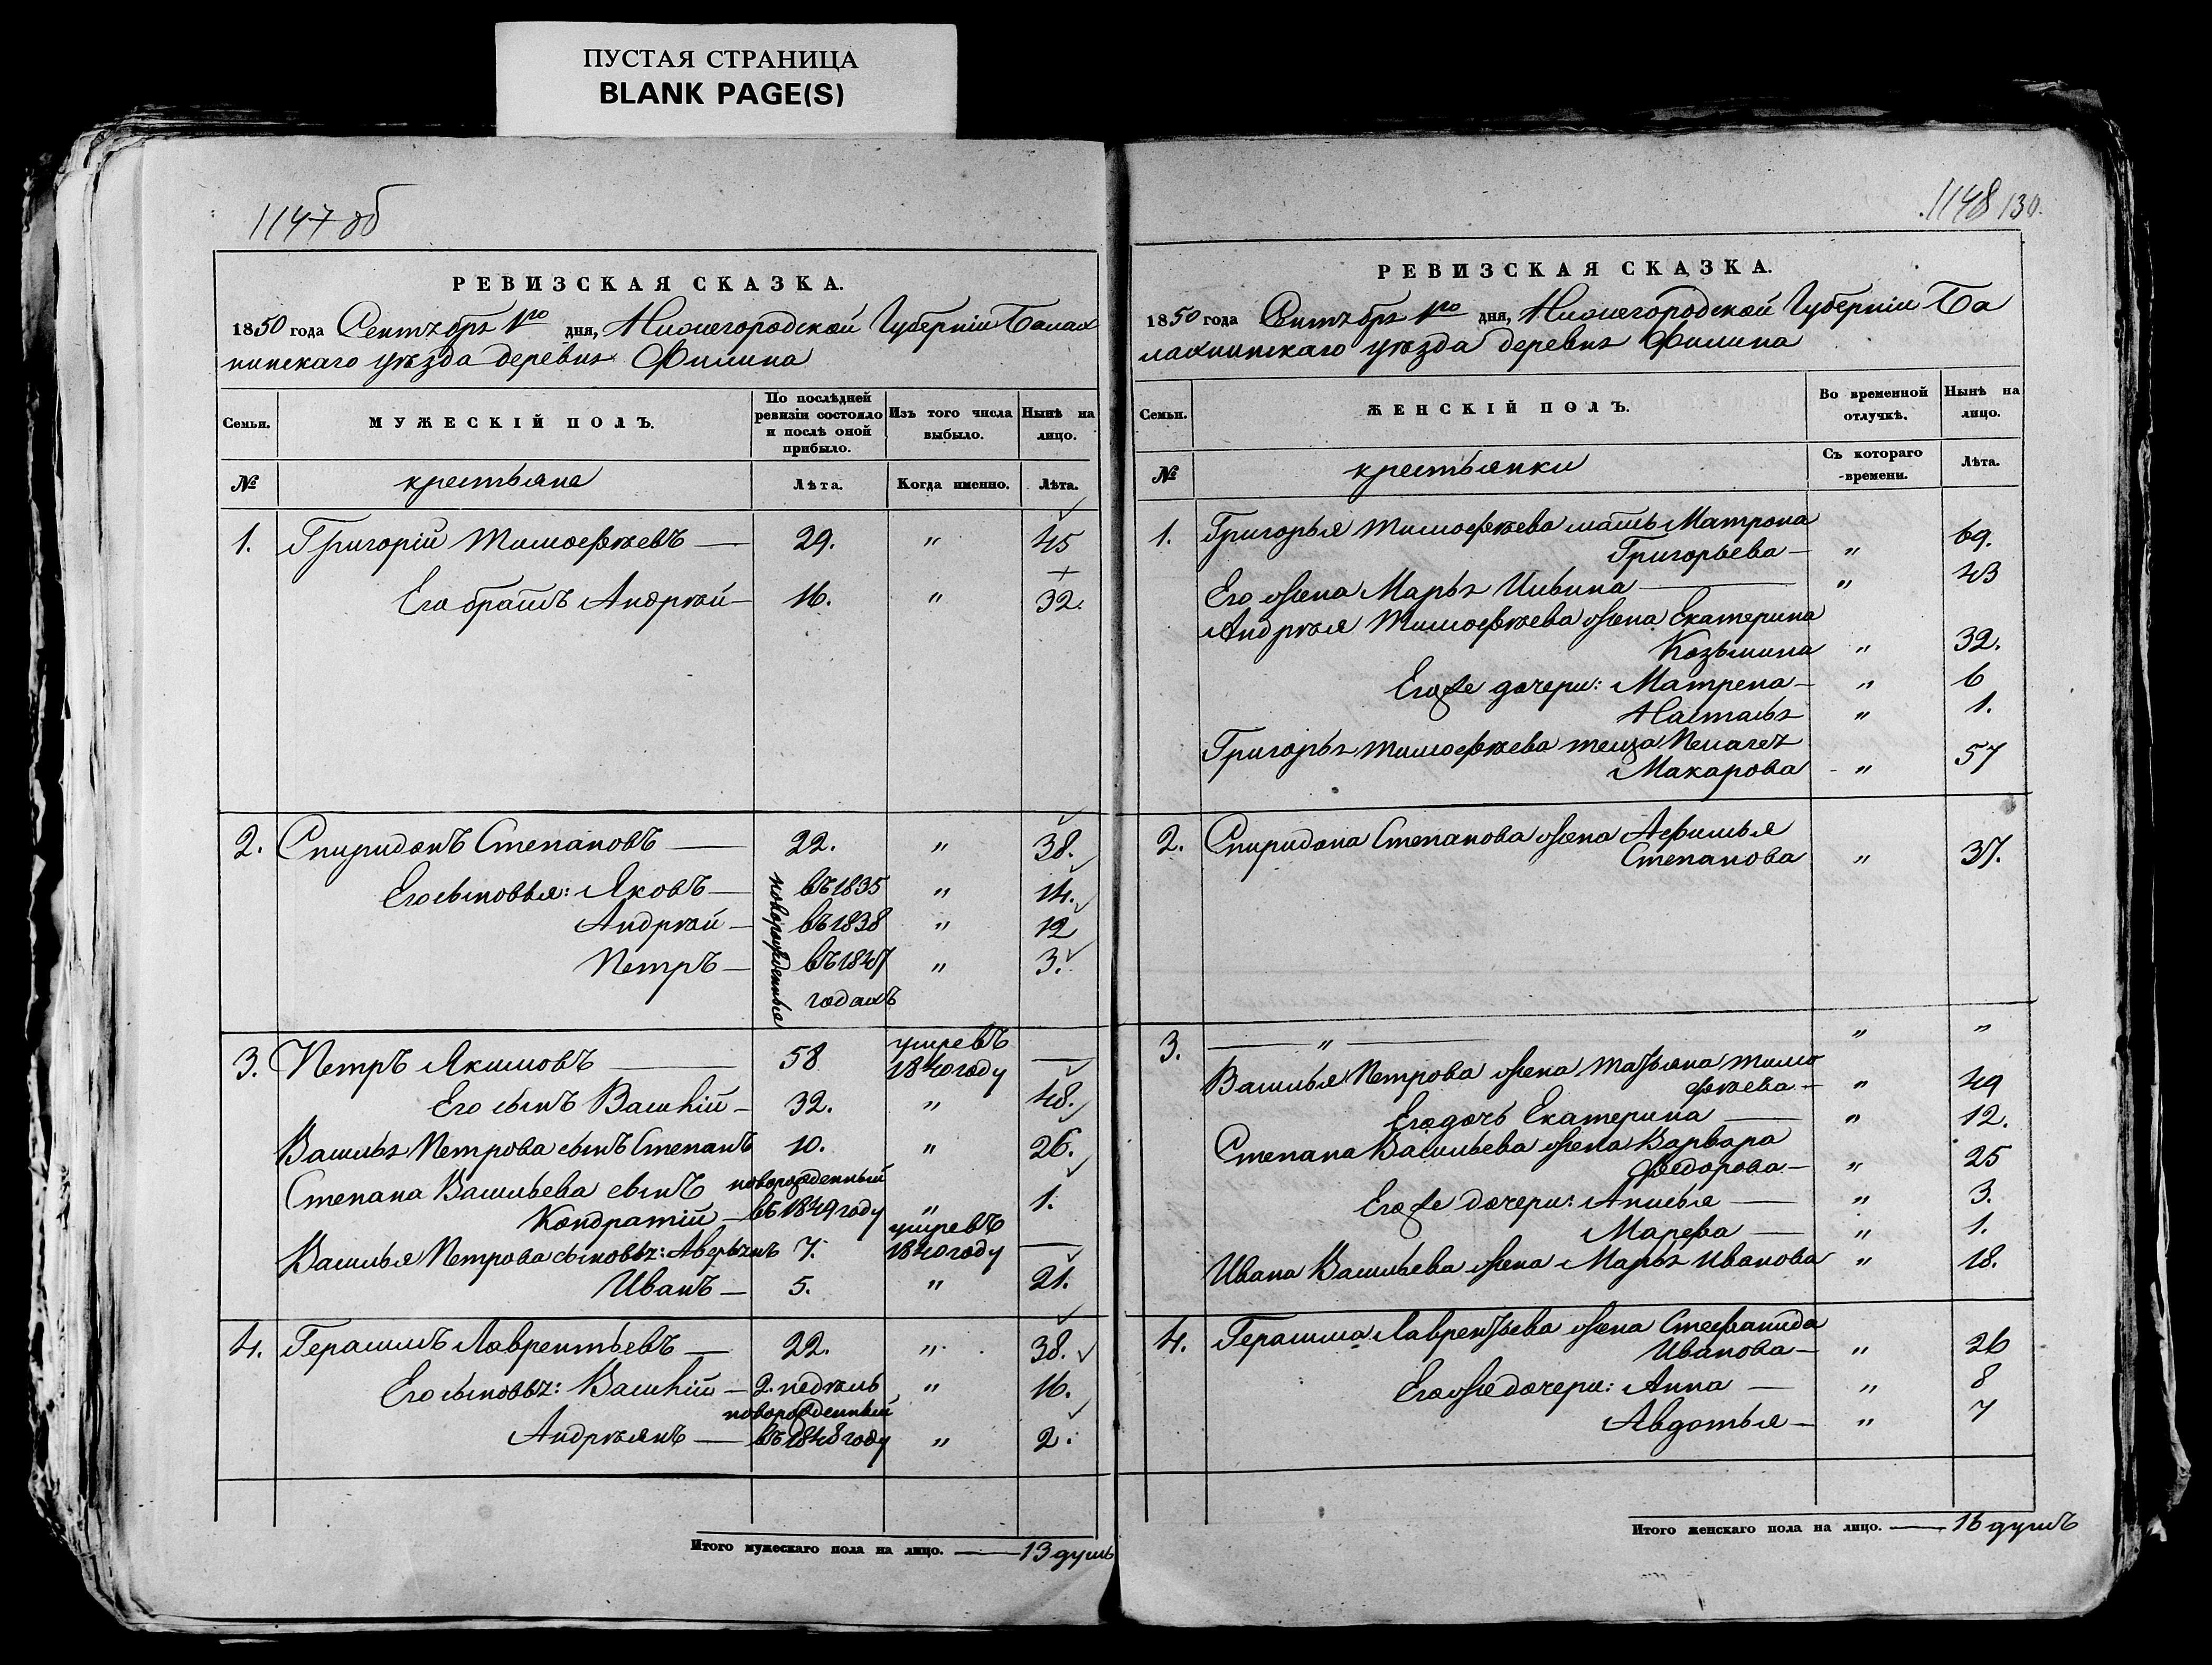 ПУСТАЯ СТРАНИЦА
BLANK PAGE(S)
1147 об
РЕВИЗСКАЯ СКАЗКА.
1850 года Сентября 1го дня, Нижегородской Губерніи Балах
нинскаго уѣзда деревня Филина
Семьи.
МУЖЕСКІЙ ПОЛЪ.
По послѣдней ревизіи состояло и послѣ оной прибыло.
Изъ того числа выбыло.
Нынѣ на лицо.
№ крестьяне Лѣта. Когда именно. Лѣта.
1. Григорій Тимофѣевъ — 29. " 45
Его братъ Андрѣй — 16. " 32.
2. Спиридонъ Степановъ — 22. " 38.
новорожденные
Его сыновья: Яковъ — въ 1835 " 14.
Андрѣй — въ 1838 " 12
Петръ — въ 1847 " 3.
годахъ
3. Петръ Якимовъ — 58 умре въ 1840 году —
Его сынъ Василій — 32. " 48.
Василья Петрова сынъ Степанъ 10. " 26.
Степана Васильева сынъ новорожденный
Кондратій — въ 1849 году " 1.
Василья Петрова сыновья: Аверьянъ 7. умре въ 1840 году —
Иванъ — 5. " 21.
4. Герасимъ Лаврентьевъ — 22. " 38.
Его сыновья: Василій — 2. недѣль " 16.
новорожденный
Андрѣянъ — въ 1848 году " 2.
Итого мужескаго пола на лицо. — 13 душъ
1148 130.
РЕВИЗСКАЯ СКАЗКА.
1850 года Сентября 1го дня, Нижегородской Губерніи Ба
лахнинскаго уѣзда деревня Филина
Семьи.
ЖЕНСКІЙ ПОЛЪ.
Во временной отлучкѣ.
Нынѣ на лицо.
№ крестьянки Съ котораго времени. Лѣта.
1. Григорья Тимофѣева мать Матрона
Григорьева — " 69.
Его жена Марья Ильина — " 43
Андрѣя Тимофѣева жена Екатерина
Козьмина " 32.
Его же дочери: Матрена — " 6
Насталья " 1.
Григорья Тимофѣева теща Пелагея
Макарова — " 57
2. Спиридона Степанова жена Афимья
Степанова " 37.
3. — " — " "
Василья Петрова жена Татьяна Тимо
фѣева — " 49
Его дочь Екатерина — " 12.
Степана Васильева жена Варвара
Федорова — " 25
Его же дочери: Анисья — " 3.
Марева — " 1.
Ивана Васильева жена Марья Иванова " 18.
4. Герасима Лаврентьева жена Стефанида
Иванова — " 26
Его же дочери: Анна — " 8
Авдотья — " 7
Итого женскаго пола на лицо. — 16 душъ